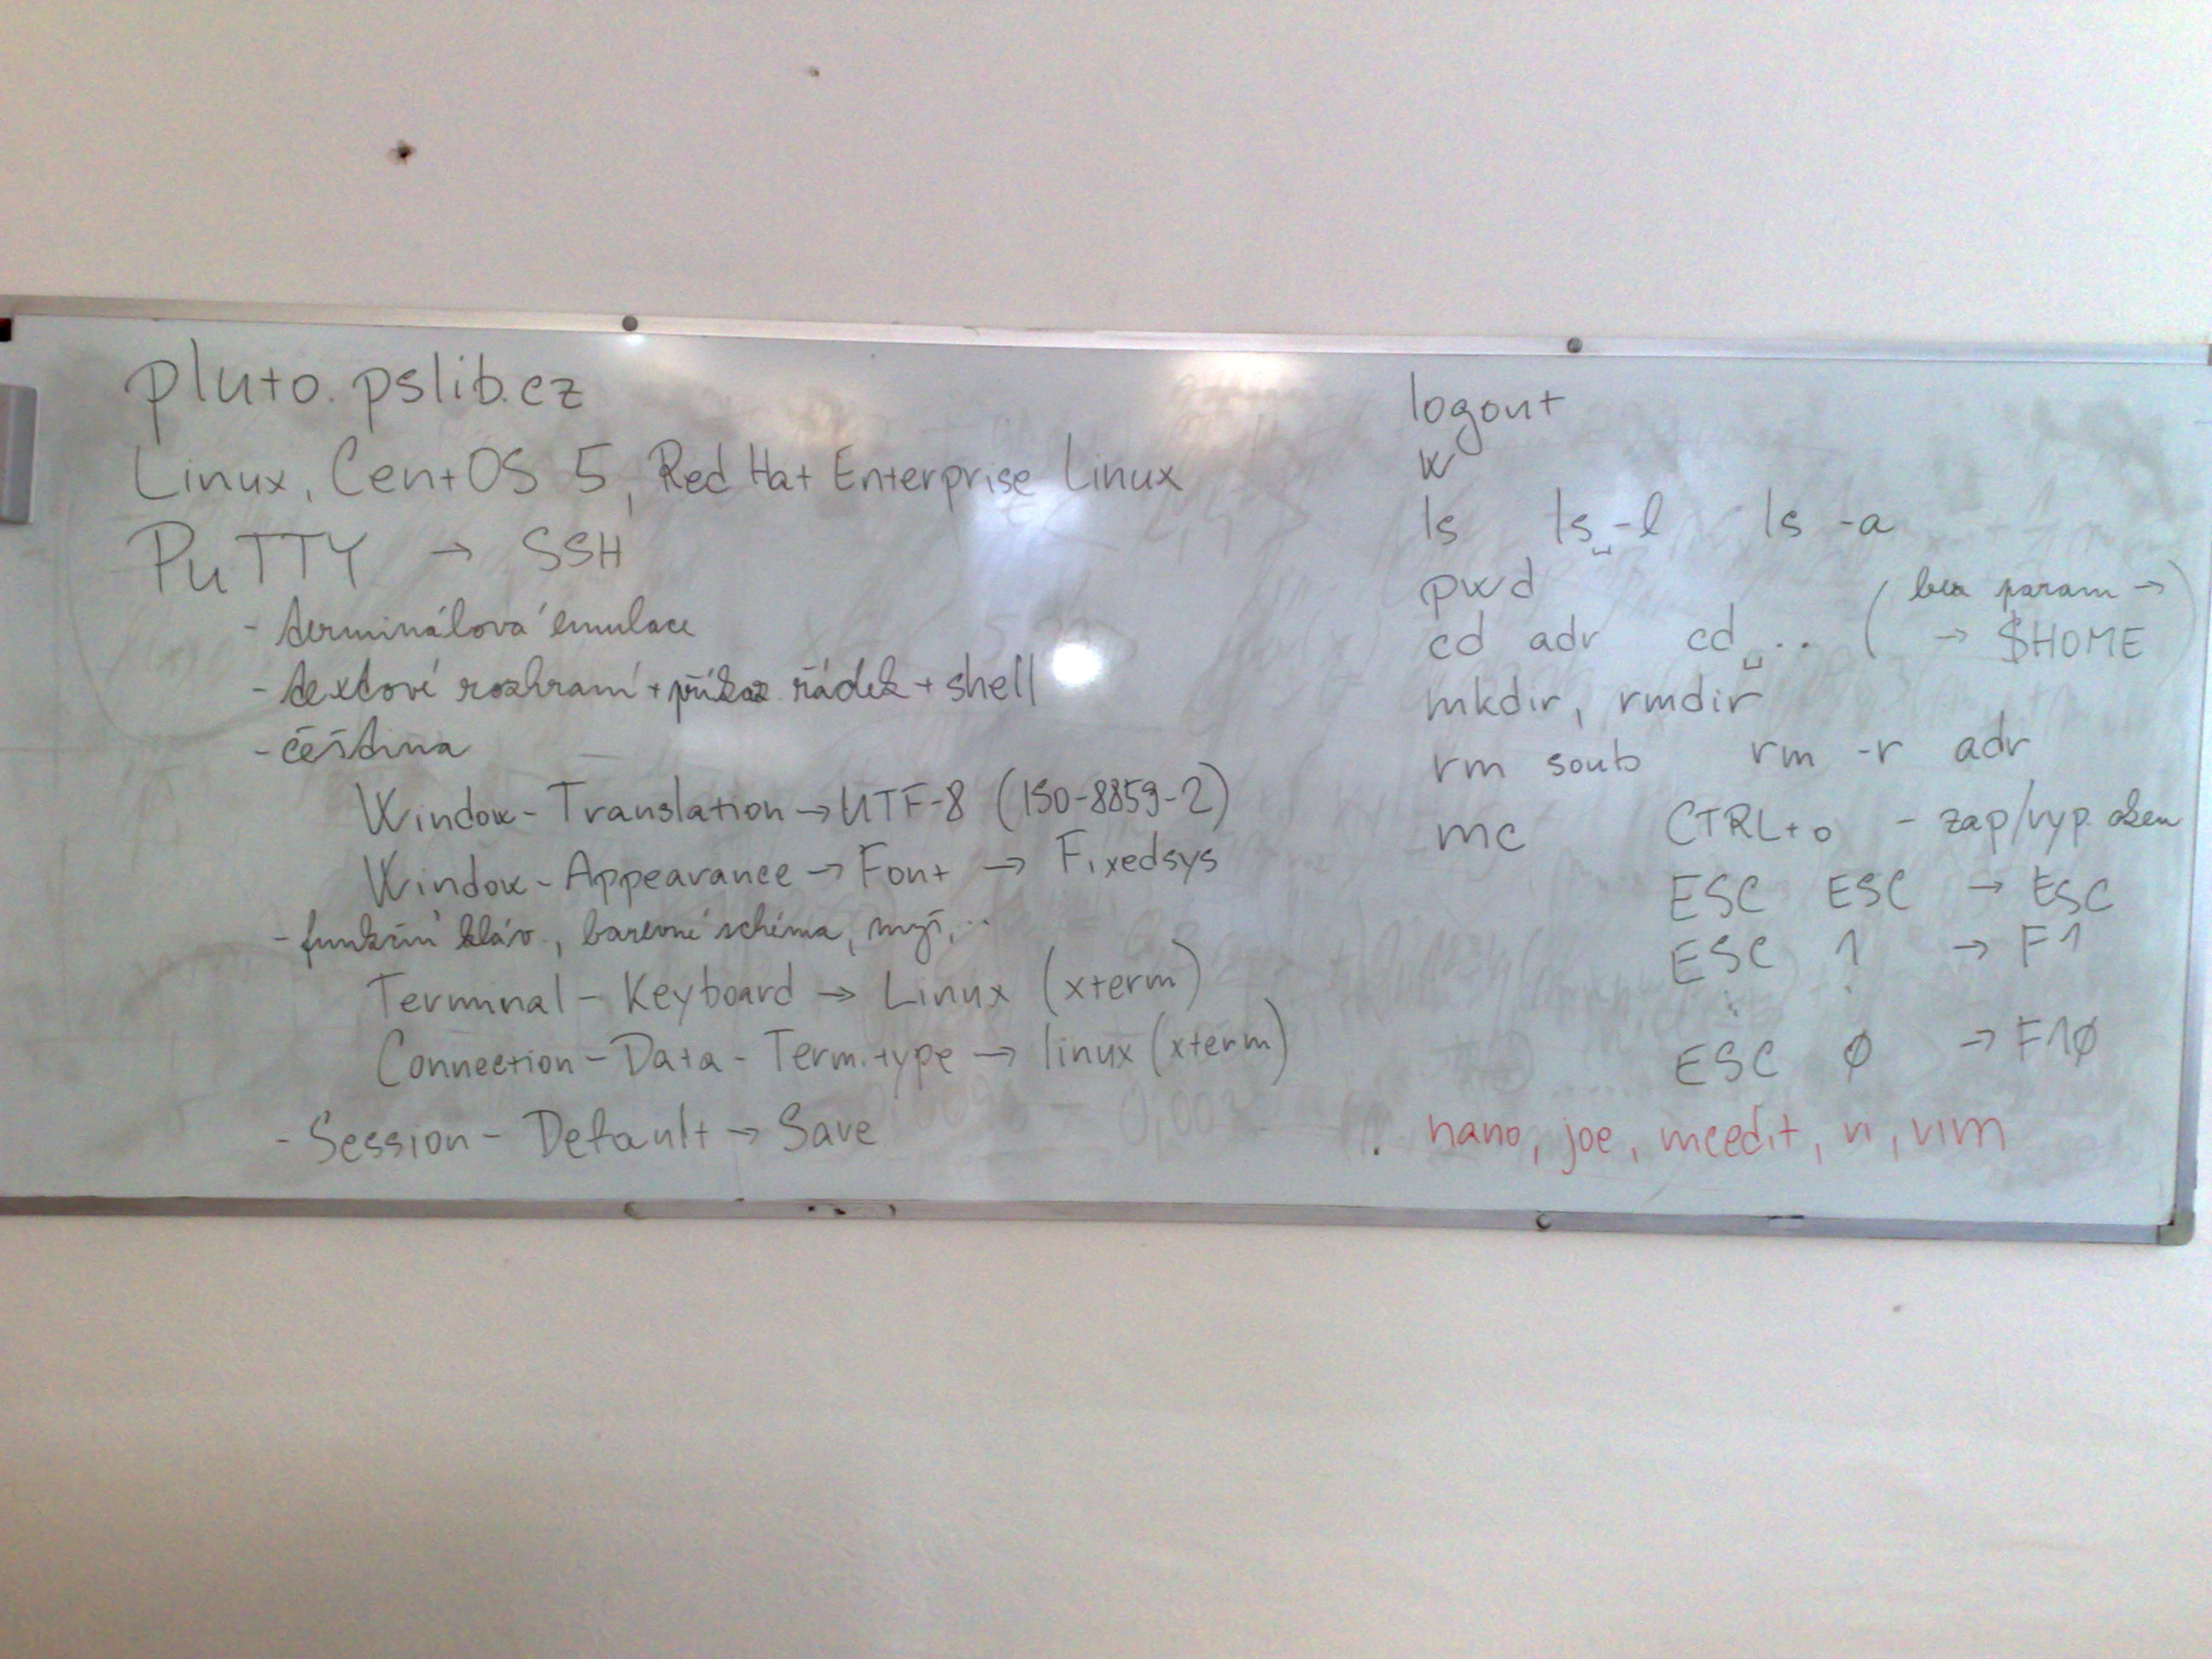 pluto.pslib.cz
Linux, CentOS 5, Red Hat Enterprise Linux
PuTTY → SSH
- terminálová emulace
- textové rozhraní + příkaz řádek + shell
- čeština
Window - Translation → UTF-8 (ISO-8859-2)
Window - Appearance → Font → Fixedsys
- funkční kláv., barevné schéma, myš, ...
Terminal - Keyboard → Linux (xterm)
Connection - Data - Term. type → linux (xterm)
- Session - Default → Save
logout
w
ls ls␣-l ls -a
pwd
cd adr cd␣.. (bez param → → $HOME)
mkdir, rmdir
rm soub rm -r adr
mc CTRL+o - zap/vyp. oken
ESC ESC → ESC
ESC 1 → F1
⋮ ⋮
ESC 0 → F10
nano, joe, mcedit, vi, vim